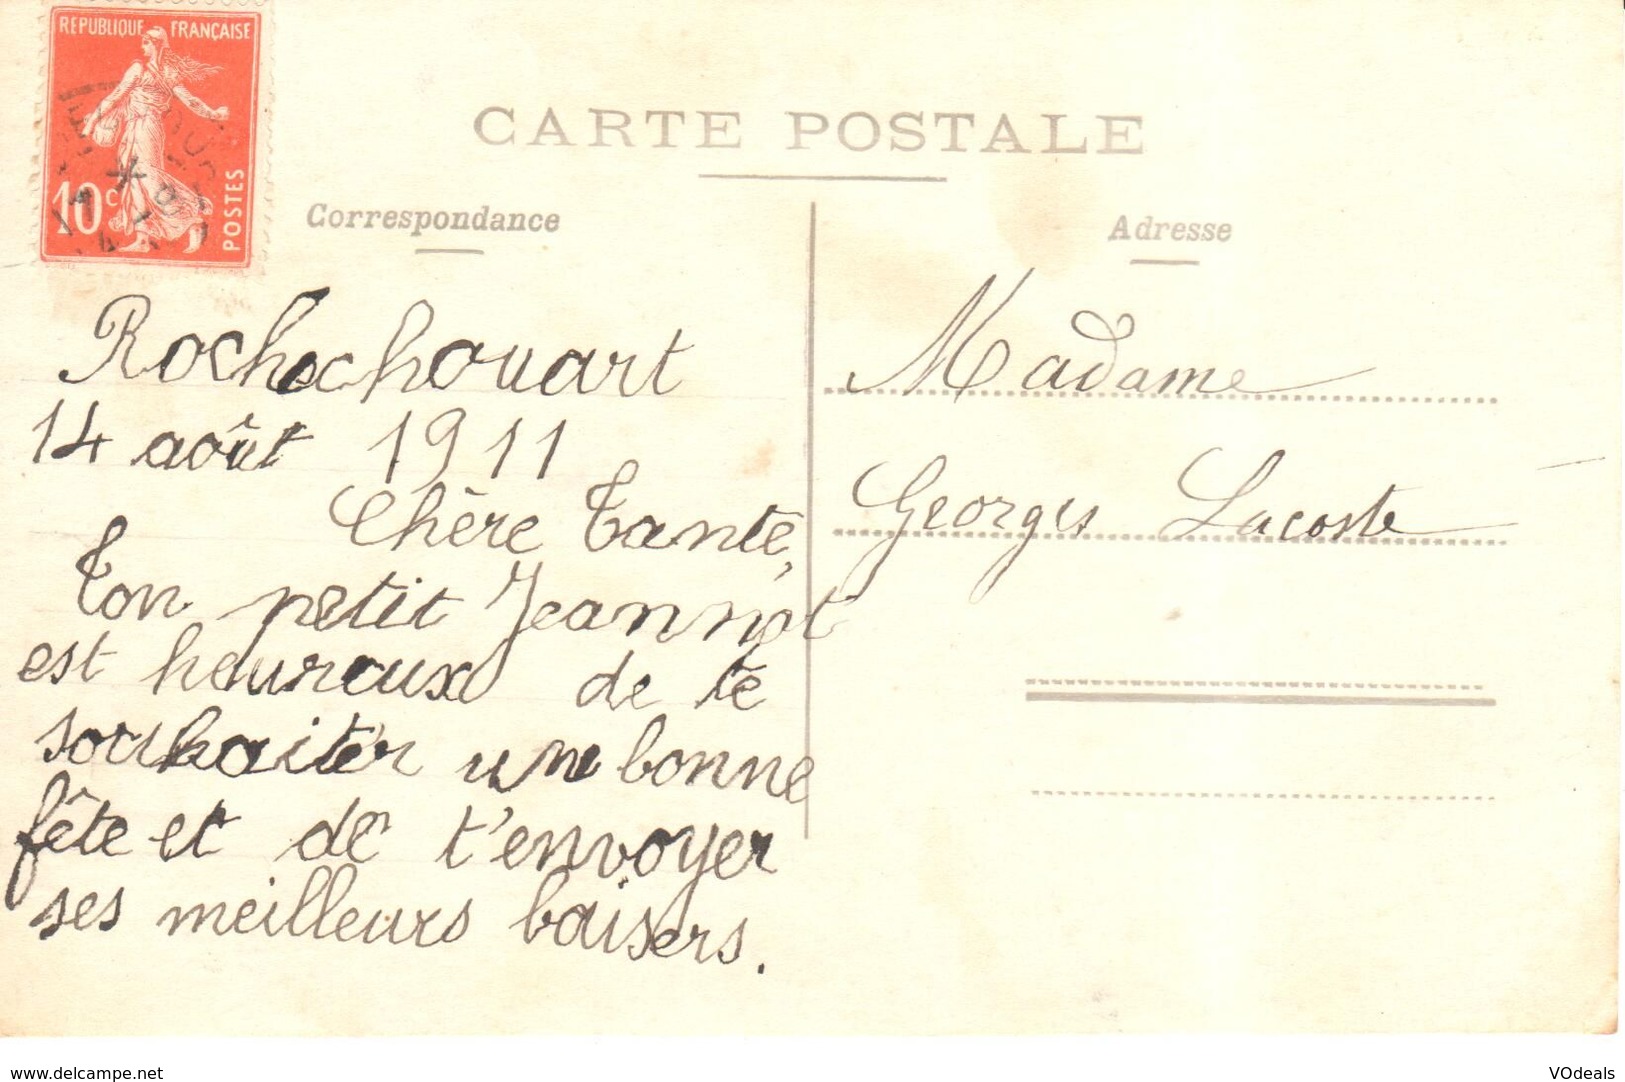 REPUBLIQUE FRANÇAISE
10c
POSTES
CARTE POSTALE
Correspondance
Adresse
Rochechouart
14 août 1911
Chère Tante,
Ton petit Jeannot
est heureux de te
souhaiter une bonne
fête et de t'envoyer
ses meilleurs baisers.
Madame
Georges Lacoste
www.delcampe.net
VOdeals